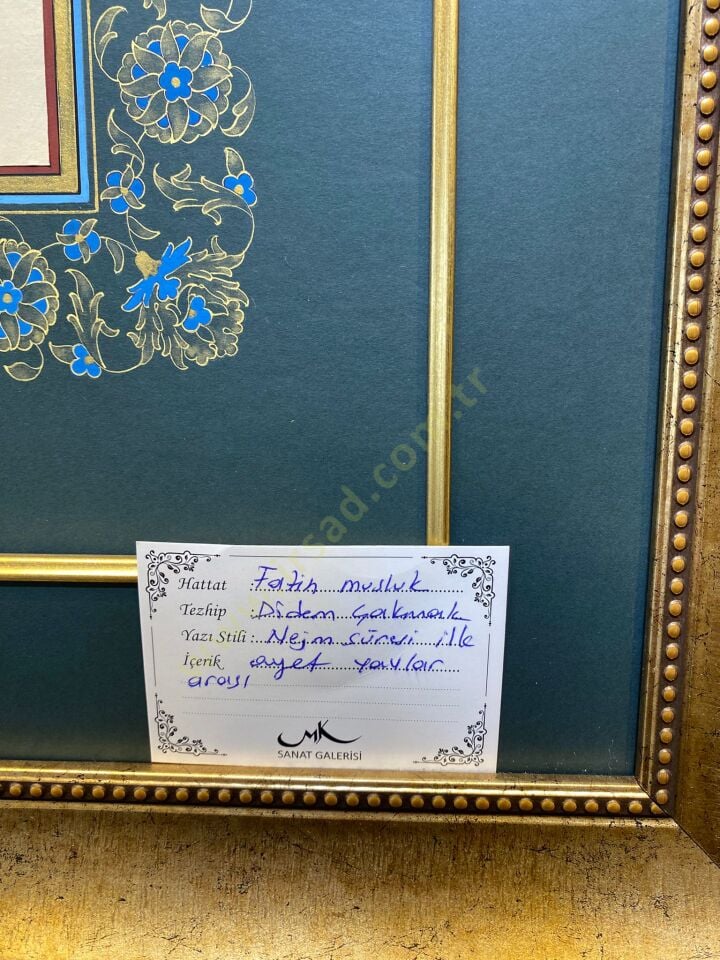 Hattat : Fatih musluk
Tezhip : Didem Çakmak
Yazı Stili : Nejm sûresi ilk
İçerik ayet yaylar
arası
MK
SANAT GALERİSİ